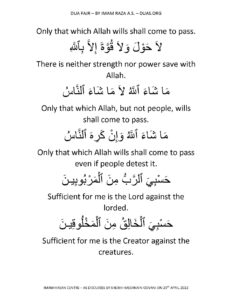 DUA FAJR – BY IMAM RAZA A.S. – DUAS.ORG
Only that which Allah wills shall come to pass.
لاَ حَوْلَ وَلاَ قُوَّةَ إِلاَّ بِٱللَّهِ
There is neither strength nor power save with
Allah.
مَا شَاءَ ٱللَّهُ لاَ مَا شَاءَ ٱلنَّاسُ
Only that which Allah, but not people, wills
shall come to pass.
مَا شَاءَ ٱللَّهُ وَإِنْ كَرِهَ ٱلنَّاسُ
Only that which Allah wills shall come to pass
even if people detest it.
حَسْبِيَ ٱلرَّبُّ مِنَ ٱلْمَرْبُوبِينَ
Sufficient for me is the Lord against the
lorded.
حَسْبِيَ ٱلْخَالِقُ مِنَ ٱلْمَخْلُوقِينَ
Sufficient for me is the Creator against the
creatures.